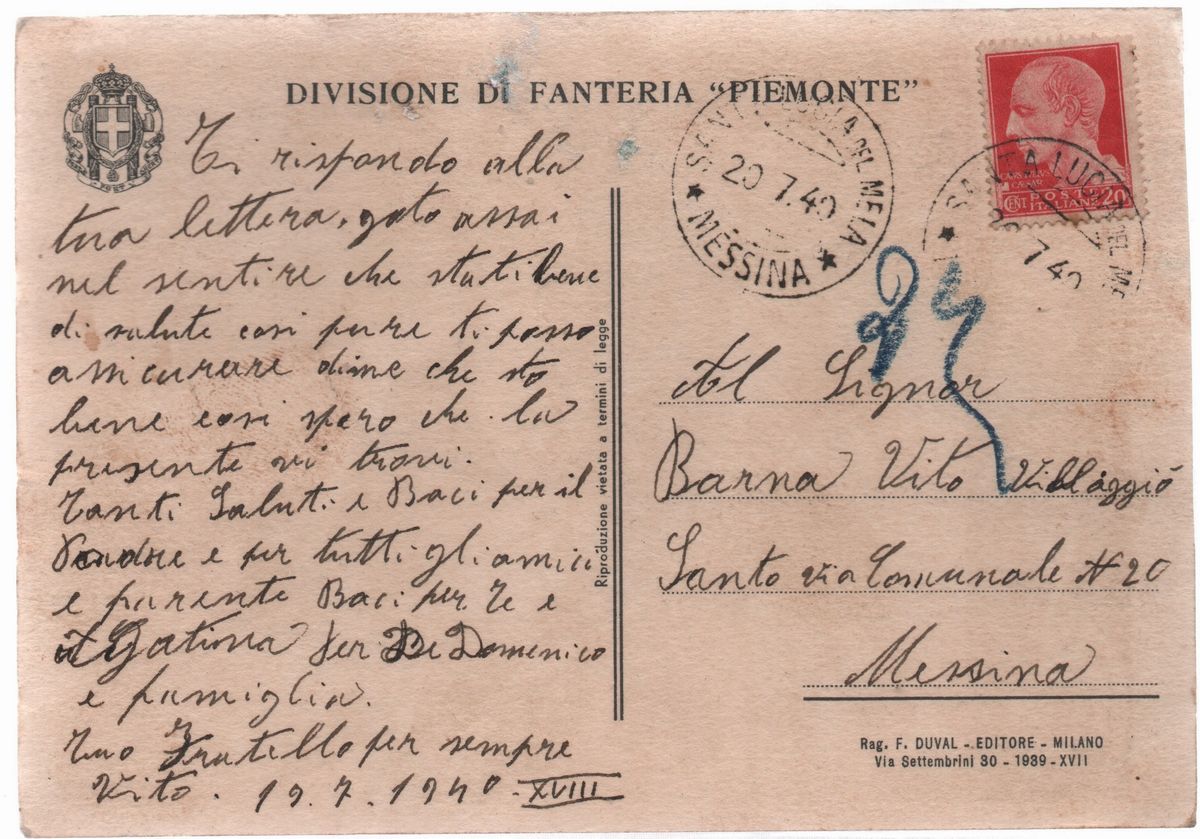 DIVISIONE DI FANTERIA "PIEMONTE"
FERT
Ti rispondo alla
tua lettera, goto assai
nel sentire che stati bene
di salute cosi pure ti posso
assicurare dime che sto
bene cosi spero che la
presente vi trovi.
Tanti Saluti e Baci per il
e per tutti gli amici
e parente Baci per Te e
Gatina Per De Domenico
e famiglia.
Tuo Fratello per sempre
Vito. 19.7.1940. XVIII
Riproduzione vietata a termini di legge
SANTA LUCIA DEL MELA
20 7.40
MESSINA
POSTE
ITALIANE
CENT 20
SANTA LUCIA DEL ME
20 7 40
Al Signor
Barna Vito Villaggió
Santo via Comunale N 20
Messina
Rag. F. DUVAL - EDITORE - MILANO
Via Settembrini 30 - 1939 - XVII